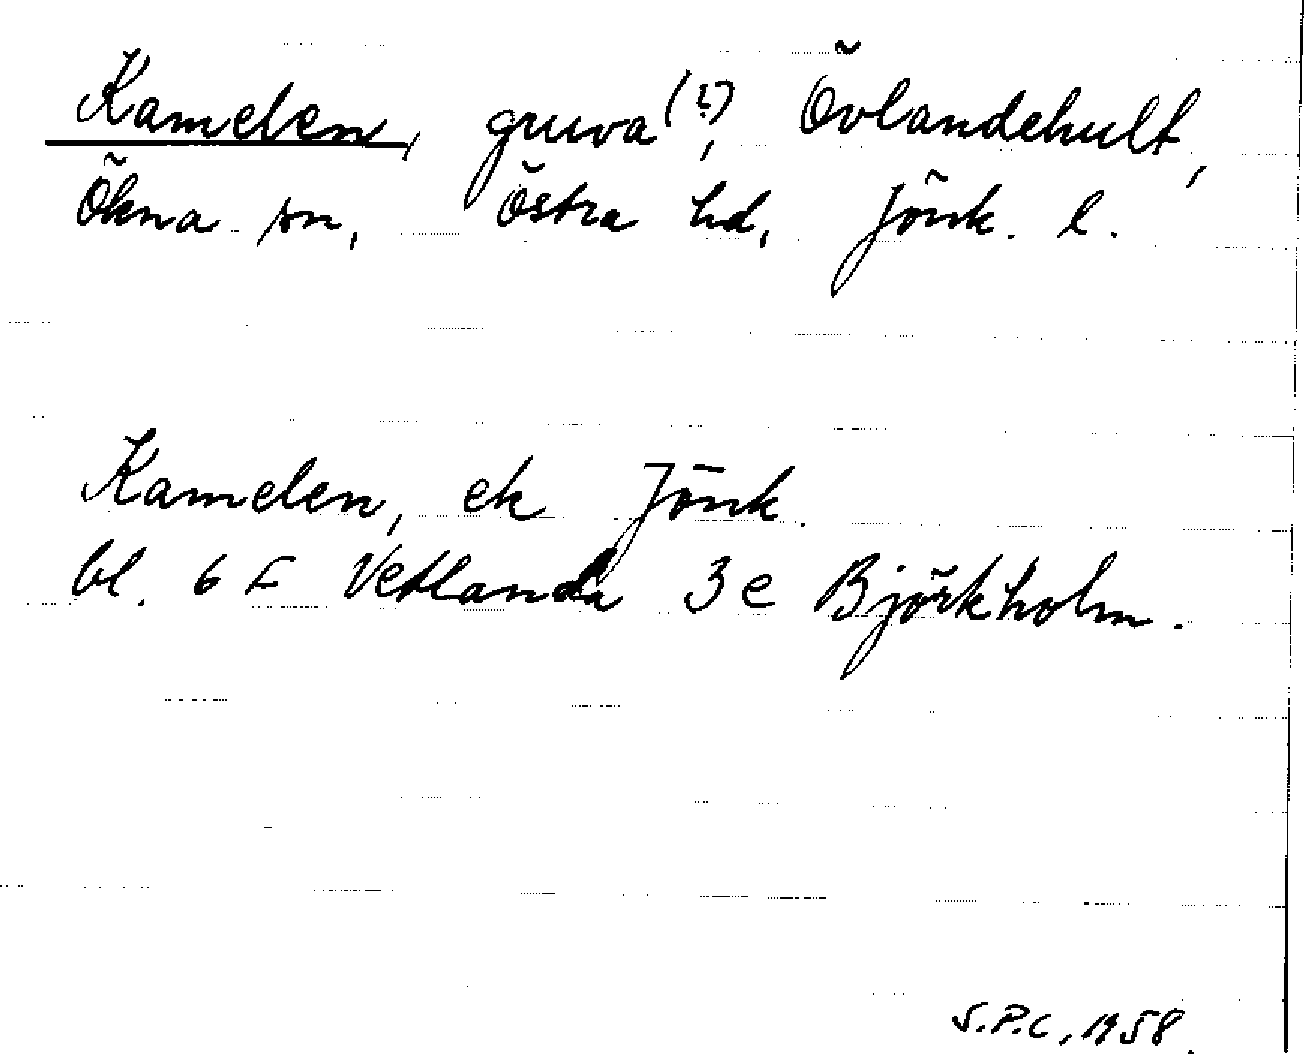 Kamelen, gruva (?), Övlandehult,
Ökna sn, Östra hd, Jönk. l.
Kamelen, ek Jönk.
bl. 6 F Vetlanda 3 e Björkholm.
S.P.C, 1958.